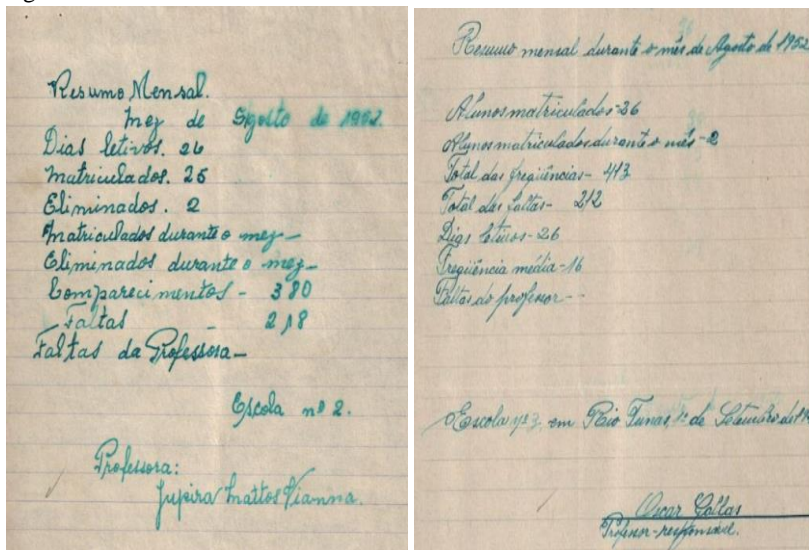 Resumo Mensal.
mez de Agosto de 1952.
Dias letivos. 26
Matriculados. 25
Eliminados. 2
Matriculados durante o mez —
Eliminados durante o mez —
Comparecimentos - 380
Faltas - 218
Faltas da Professora —
Escola nº 2.
Professora:
Jupira Mattos Vianna.
Resumo mensal durante o mês de Agosto de 1952
Alunos matriculados - 26
Alunos matriculados durante o mês - 2
Total das freqüências - 413
Total das faltas - 212
Dias letivos - 26
Freqüência média - 16
Faltas do professor - -
Escola nº 3, em Rio Tunas, de Setembro de
Oscar
Professor-responsável.